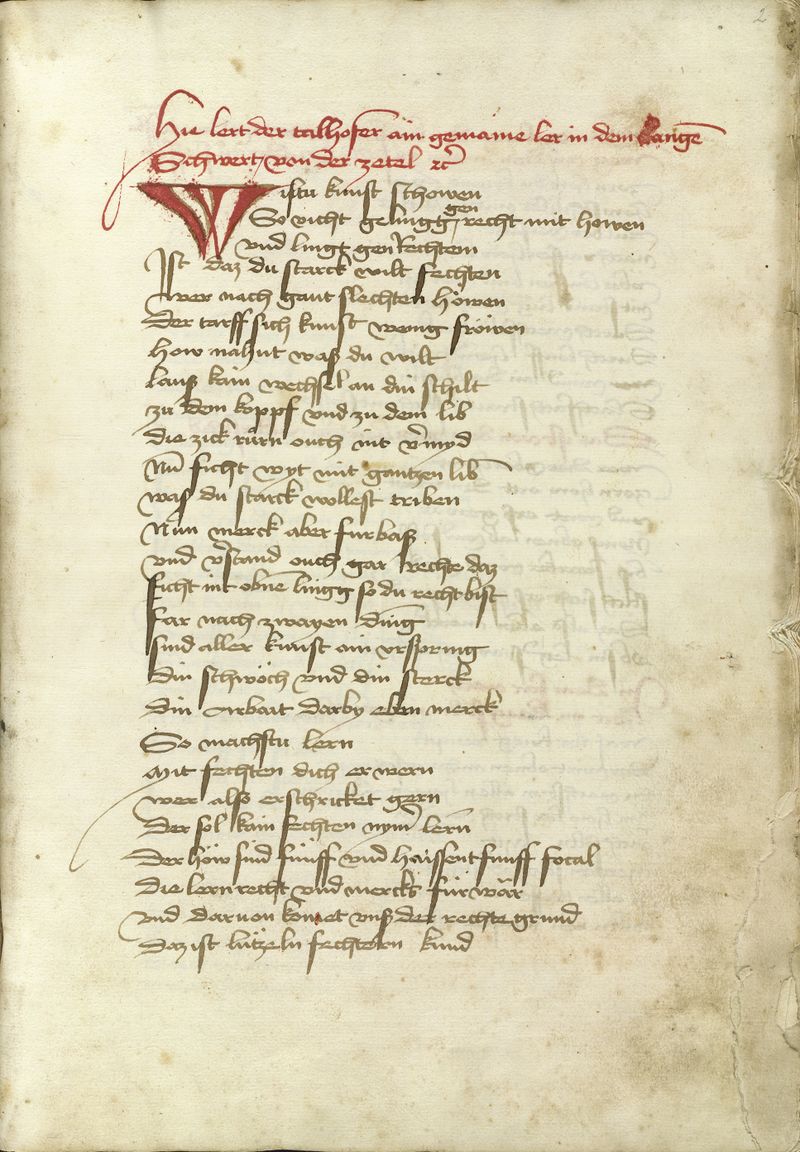 2
Hie lert der talhofer ain gemaine ler in dem langē
Schwert von der zetel ꝛc̄
Wistu kunst schowen
gen
So vicht gelingg recht mit howen
vnd lingk gen Rechtem
Ist daz du starck wilt fechten
wer nach gaut slechten höwen
Der tarff sich kunst wenig fröwen
how nahnt waß du wilt
lauß kain wechsel an din schilt
zu dem koppf vnd zu dem lib
die zick rürn ouch nit v̄myd
Nū ficht wyt mit gantzen lib
waß du starck wollest triben
Nun merck aber furbaß
vnd v̄stand ouch gar rechte daz
ficht nit obnē lingg so du recht bist
Far nach zwayen ding
sind aller kunst ain vrspring
din schwöch vnd din sterck
din arbait darby eben merck
So machstu lern
Mit fechten dich erwern
wer alß erschricket gern
Der sol kain fechten nym̄ lern
Der höw sind fünff vnd haissent funff focal
die lern recht vnd mercks für wär
vnd daruon komet vnß der rechte grund
daz ist lützeln fechtern kund